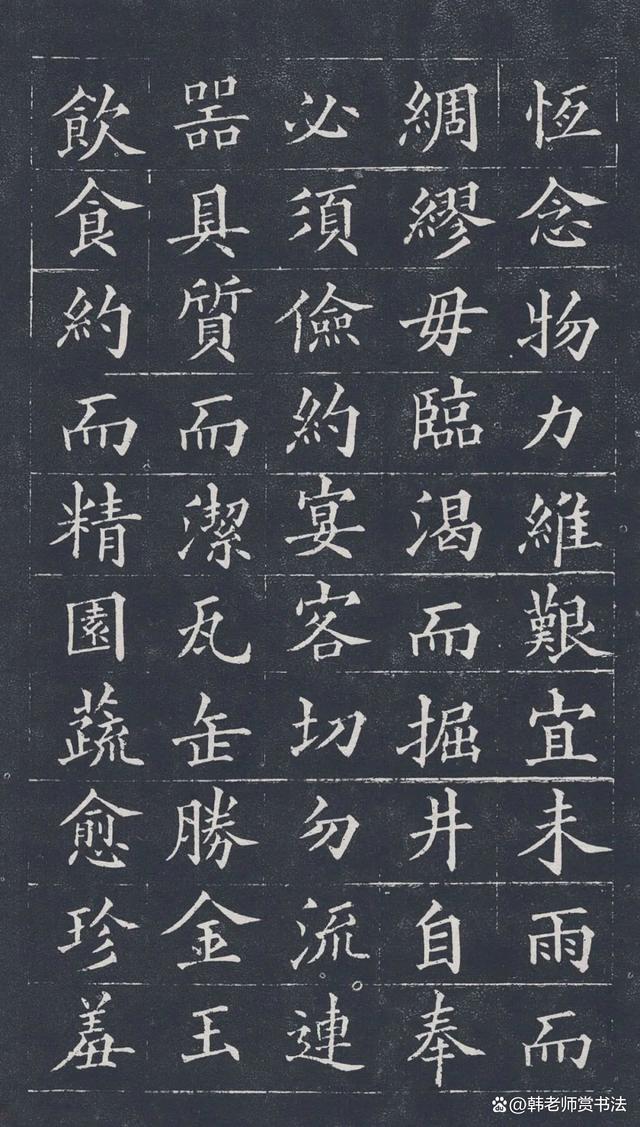 恆念物力維艱宜未雨而
綢繆毋臨渴而掘井自奉
必須儉約宴客切勿流連
器具質而潔瓦缶勝金玉
飲食約而精園蔬愈珍羞
@韩老师赏书法